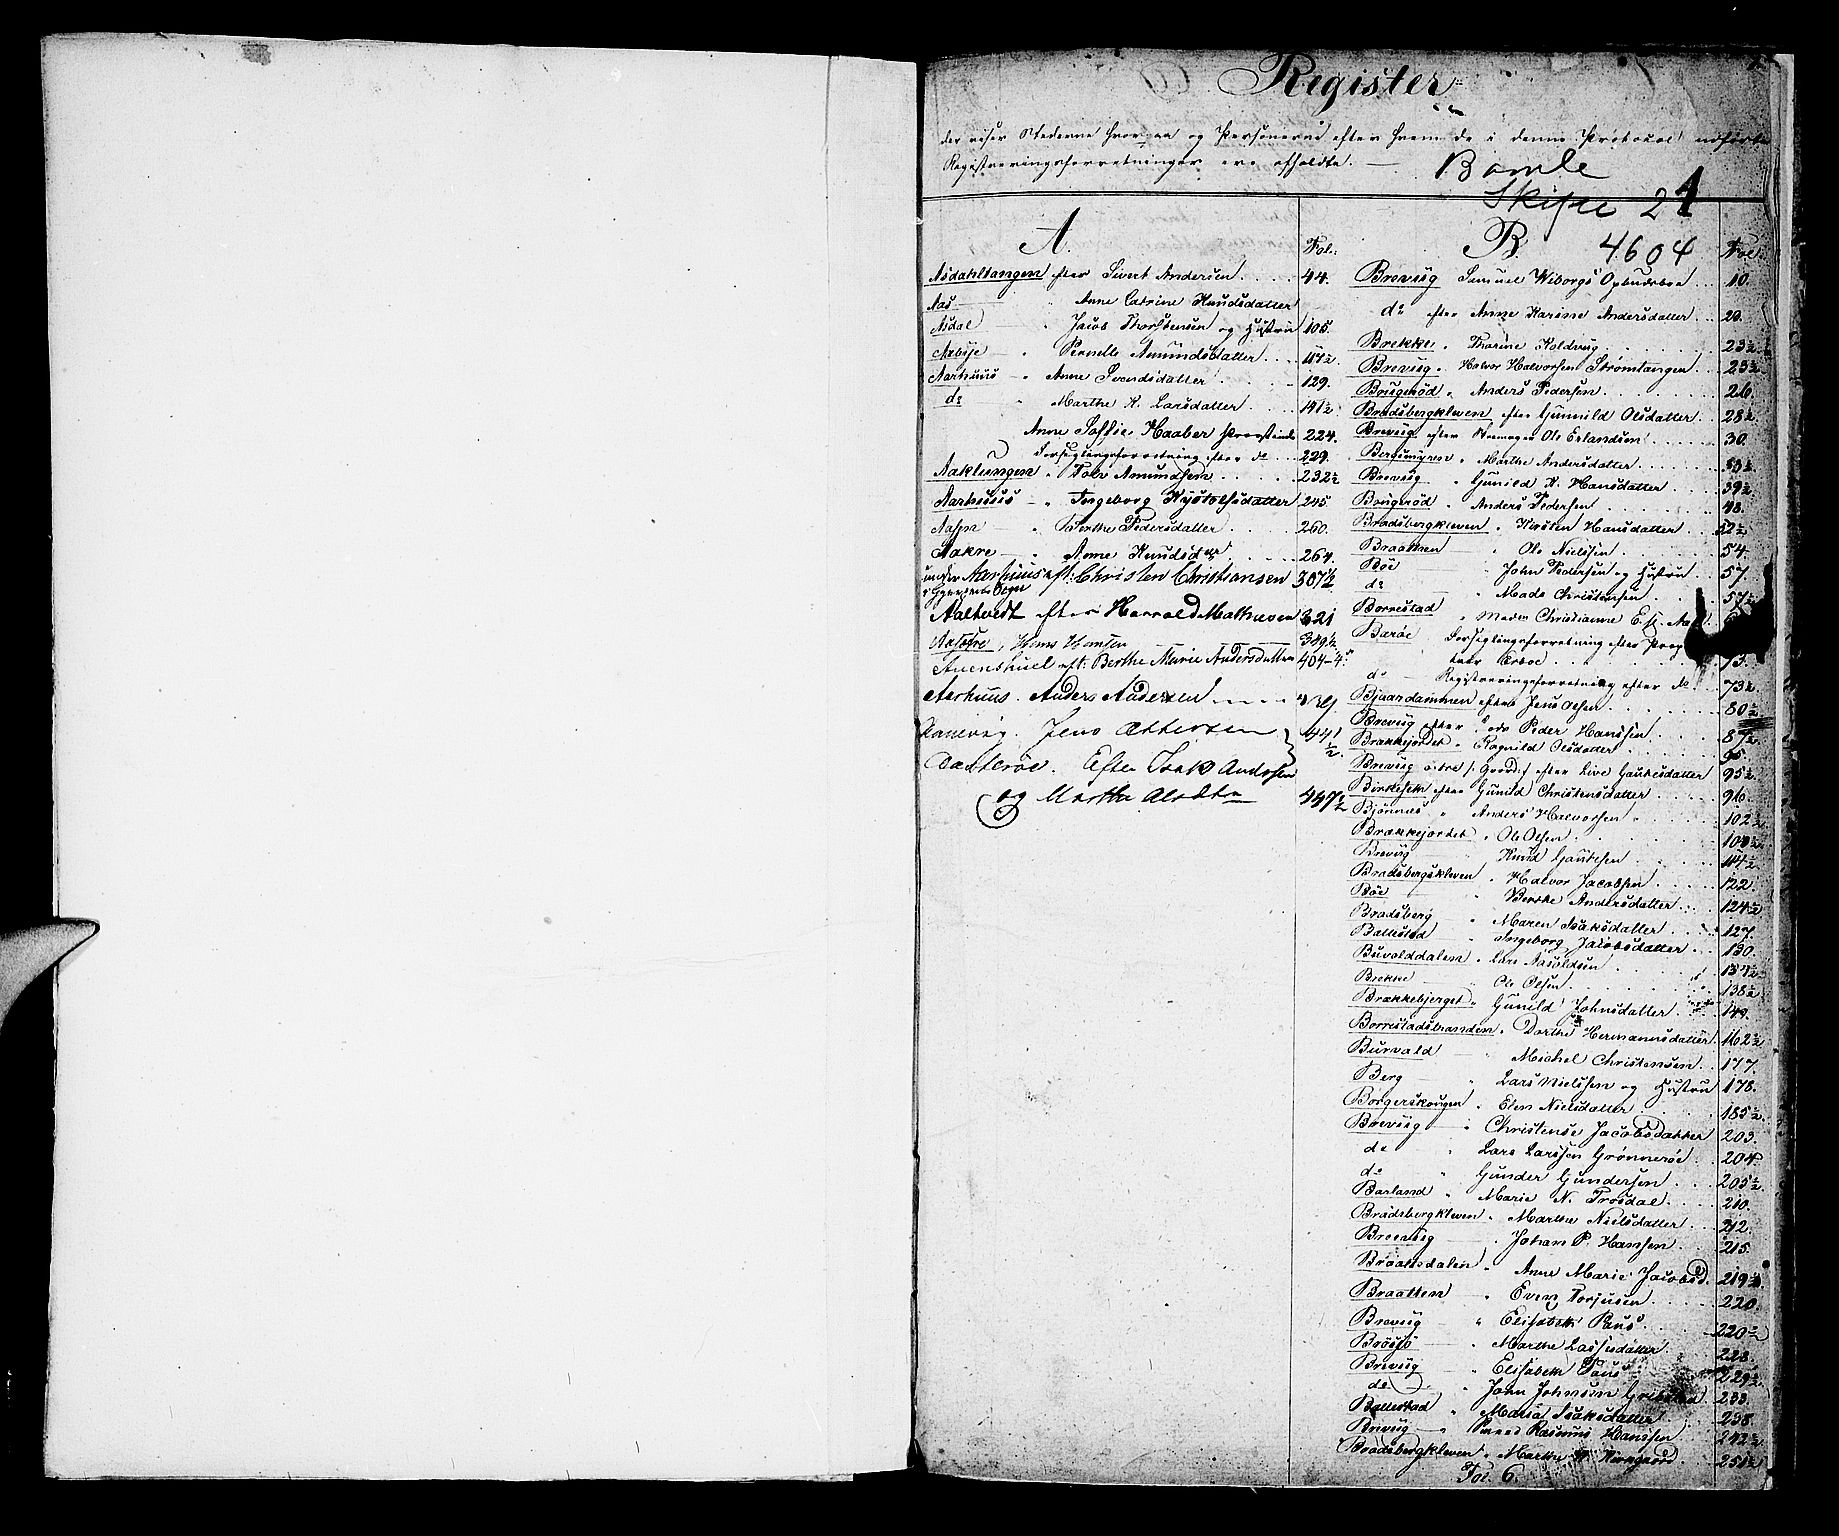 Register
der viser Stederne hvorpaa og Personerne efter hvem de i denne Protokol indførte
Registreringsforretninger ere afholdte.
Bamle
Skifte 21
4604
A. Fol:
Asdahltangen efter Sivert Andersen 44.
Aas " Anne Catrine Knudsdatter
Asdal " Jacob Thorstensen og Hustru 105.
Aabøje " Pernelle Amundsdatter 117½
Aarhuus " Anne Svendsdatter 129.
do " Marthe K. Larsdatter 141½
Anne Soffie Haaber Provstinde 224.
Forseglingsforretning efter do 229.
Aaklungen " Tolv Amundsen 232½
Aarhuus " Ingeborg Kystolfsdatter 245.
Aasen " Berthe Pedersdatter 260.
Aakre " Anne Knudsdtr 264.
under Aarhuus eft: Christen Christiansen 307½
Aaltvedt efter Harrald Mathiesen 321
Hans Hansen 349½
eft. Berthe Marie Andersdatter 404-4
Aarhuus. Anders Andersen 439
Jens Attersen 441½
Efter Isak Andssen
og Marthe Olsdtr 447½
B. Fol:
Brevug Samuel Wiborgs Opbudsboe 10.
do efter Anne Karine Andersdatter 20.
Brekke " Thorine Koldevig 23½
Brevug " Halvor Halvorsen Strømtangen 25½
Bougerød " Anders Pedersen 26.
Bradsbergkleven efter Gunnild Olsdatter 28½
Brevug efter Ole Erlandsen 30.
Bergsmyren " Marthe Andersdatter 33½
Brevug " Gunild K. Hansdatter 39½
Bougerød " Anders Pedersen 48.
Bradsbergkleven " Kirsten Hansdatter 52½
Braatten " Ole Nielssen 54.
Bøe " John Pedersen og Hustru 57.
do " Mads Christensen 57½
Borrestad " Maren Christianne
Barøe Forseglingsforretning efter
73.
do Registreringsforretning efter do 73½
Bjaardammen efter Jens Olsen 80½
Brevug efter Peder Hanssen 87½
Brækkejordet " Ragnild Olsdatter 95.
Brevug efter Live Gautesdatter 95½
Birkesek efter Gunild Christensdatter 96.
Bjønnes " Anders Halvorsen 102½
Brækkejordet " Ole Olsen 104½
Brevug " Knud Gautesen 114½
Bradsbergskleven " Halvor Jacobsen 122.
Bøe " Berthe Andersdatter 124½
Bradsberg " Maren Isaksdatter 127.
Ballestad " Ingeborg Jacobsdatter 130.
Buvolddalen " Lars Aasoldsen 137½
Brekke " Ole Olsen 138½
Brækkebjerget " Gunild Johnsdatter 149.
Borrestadstranden " Dorthe Hermannsdatter 162½
Burvald " Michel Christensen 177.
Berg " Lars Nielssen og Hustru 178.
Borgerskougen " Elen Nielsdatter 185½
Brevug " Christense Jacobsdatter 203.
do " Lars Larssen Grønnerøe 204.
do " Gunder Gundersen 205½
Barland " Marie N. Trosdal 210.
Bradsbergkleven " Marthe Nielsdatter 212.
Brevig " Johan P. Hansen 215.
Braatsdalen " Anne Marie Jacobsd. 219½
Braatten " Even Torjusen 220.
Brevug " Elisabeth Paus 220½
Brøsjø " Marthe Lassesdatter 228.
Brevug " Elisabeth Paus 229½
do " John Johnsen 233.
Ballestad " Maria Isaksdatter 238.
Brevug " Rasmus Hanssen 242½
Bradsbergkleven " Marthe 251½
Fol 6.